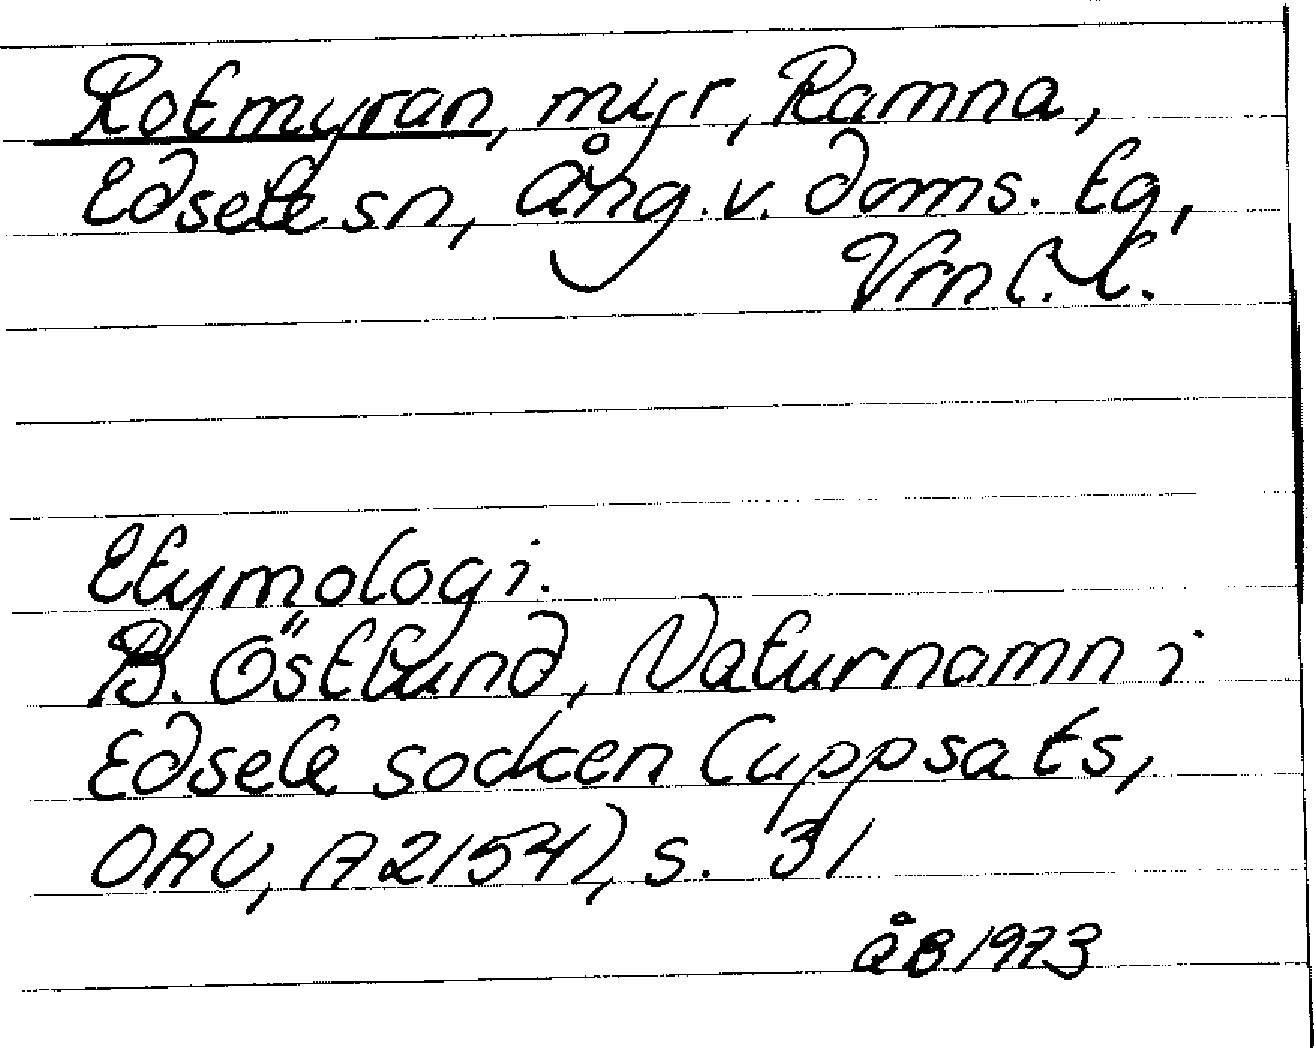 Rotmyran, myr, Ramna,
Edsele sn, Ång. v. doms. tg,
Vrnl. l.
Etymologi.
B. Östlund, Naturnamn i
Edsele socken (uppsats,
OAU, A2154), s. 31
ÅB 1973